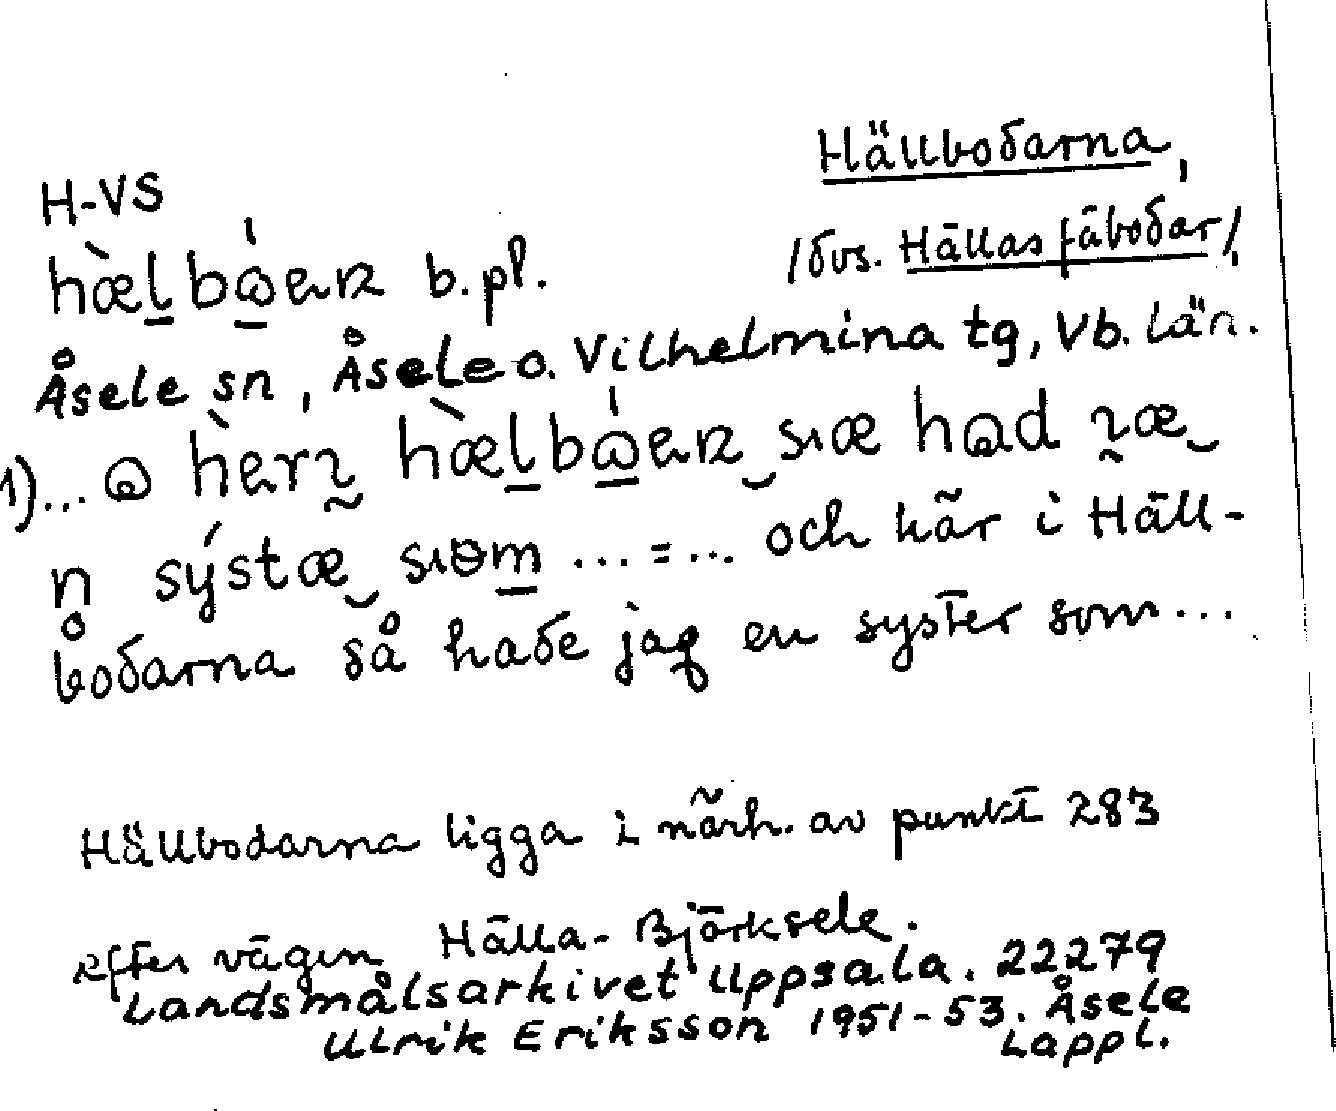 Hällbodarna,
H-VS
/dvs. Hällas fäbodar/,
b. pl.
Åsele sn, Åsele o. Vilhelmina tg, Vb. län.
1)... ... = ... och här i Häll-
bodarna så hade jag en syster som...
Hällbodarna ligga i närh. av punkt 283
efter vägen Hälla-Björksele.
Landsmålsarkivet Uppsala. 22279
Ulrik Eriksson 1951-53. Åsele
Lappl.